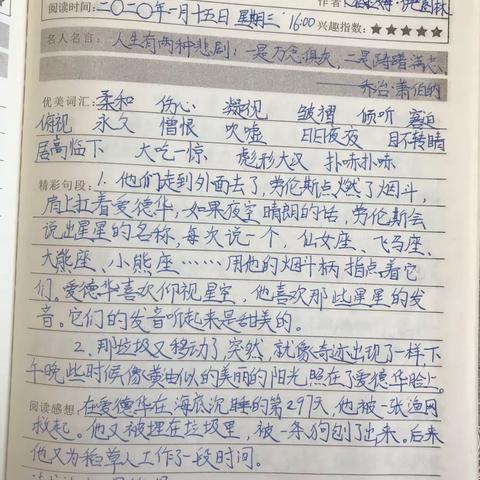 作者
阅读时间:二〇二〇年一月十五日 星期三 16:00 兴趣指数:★★★★★
名人名言:人生有两种悲剧:一是万念俱灰,二是踌躇满志。
乔治·萧伯纳
优美词汇:柔和 伤心 凝视 皱褶 倾听
俯视 永久 憎恨 吹嘘 日日夜夜 目不转睛
居高临下 大吃一惊 彪形大汉 扑哧扑哧
精彩句段:1.他们走到外面去了,劳伦斯点燃了烟斗,
肩上扛着爱德华,如果夜空晴朗的话,劳伦斯会
说出星星的名称,每次说一个,仙女座、飞马座、
大熊座、小熊座……用他的烟斗柄指点着它
们。爱德华喜欢仰视星空,他喜欢那些星星的发
音。它们的发音听起来是甜美的。
2、那垃圾又移动了,突然,就像奇迹出现了一样,下
午晚些时候像黄油似的美丽的阳光照在了爱德华脸上。
阅读感想:在爱德华在海底沉睡的第297天,他被一张渔网
救起。他又被埋在垃圾里,被一条狗刨了出来。后来
他又为稻草人工作了一段时间。